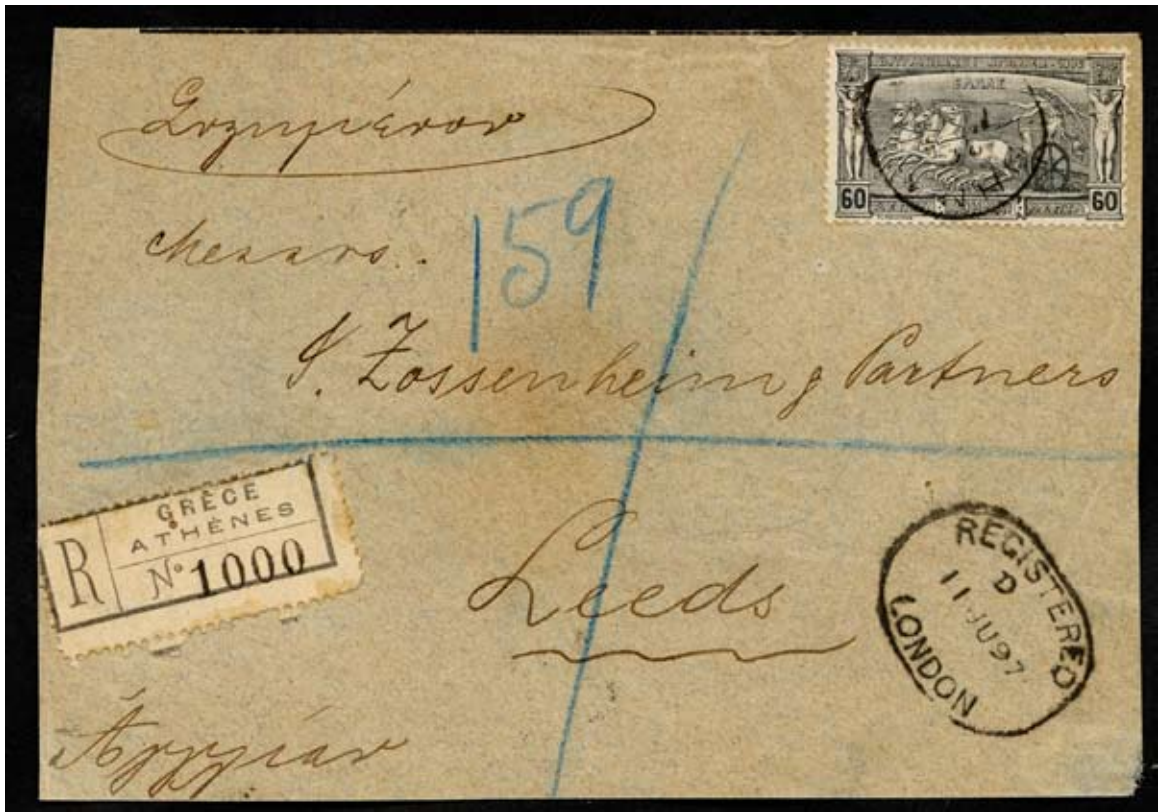 Συστημένον
60 ΕΛΛΑΣ 60
159
Messrs.
S. Zossenheim & Partners
Leeds
R GRÈCE
ATHÈNES
No 1000
REGISTERED
D
11 JU 97
LONDON
Ἀγγλίαν